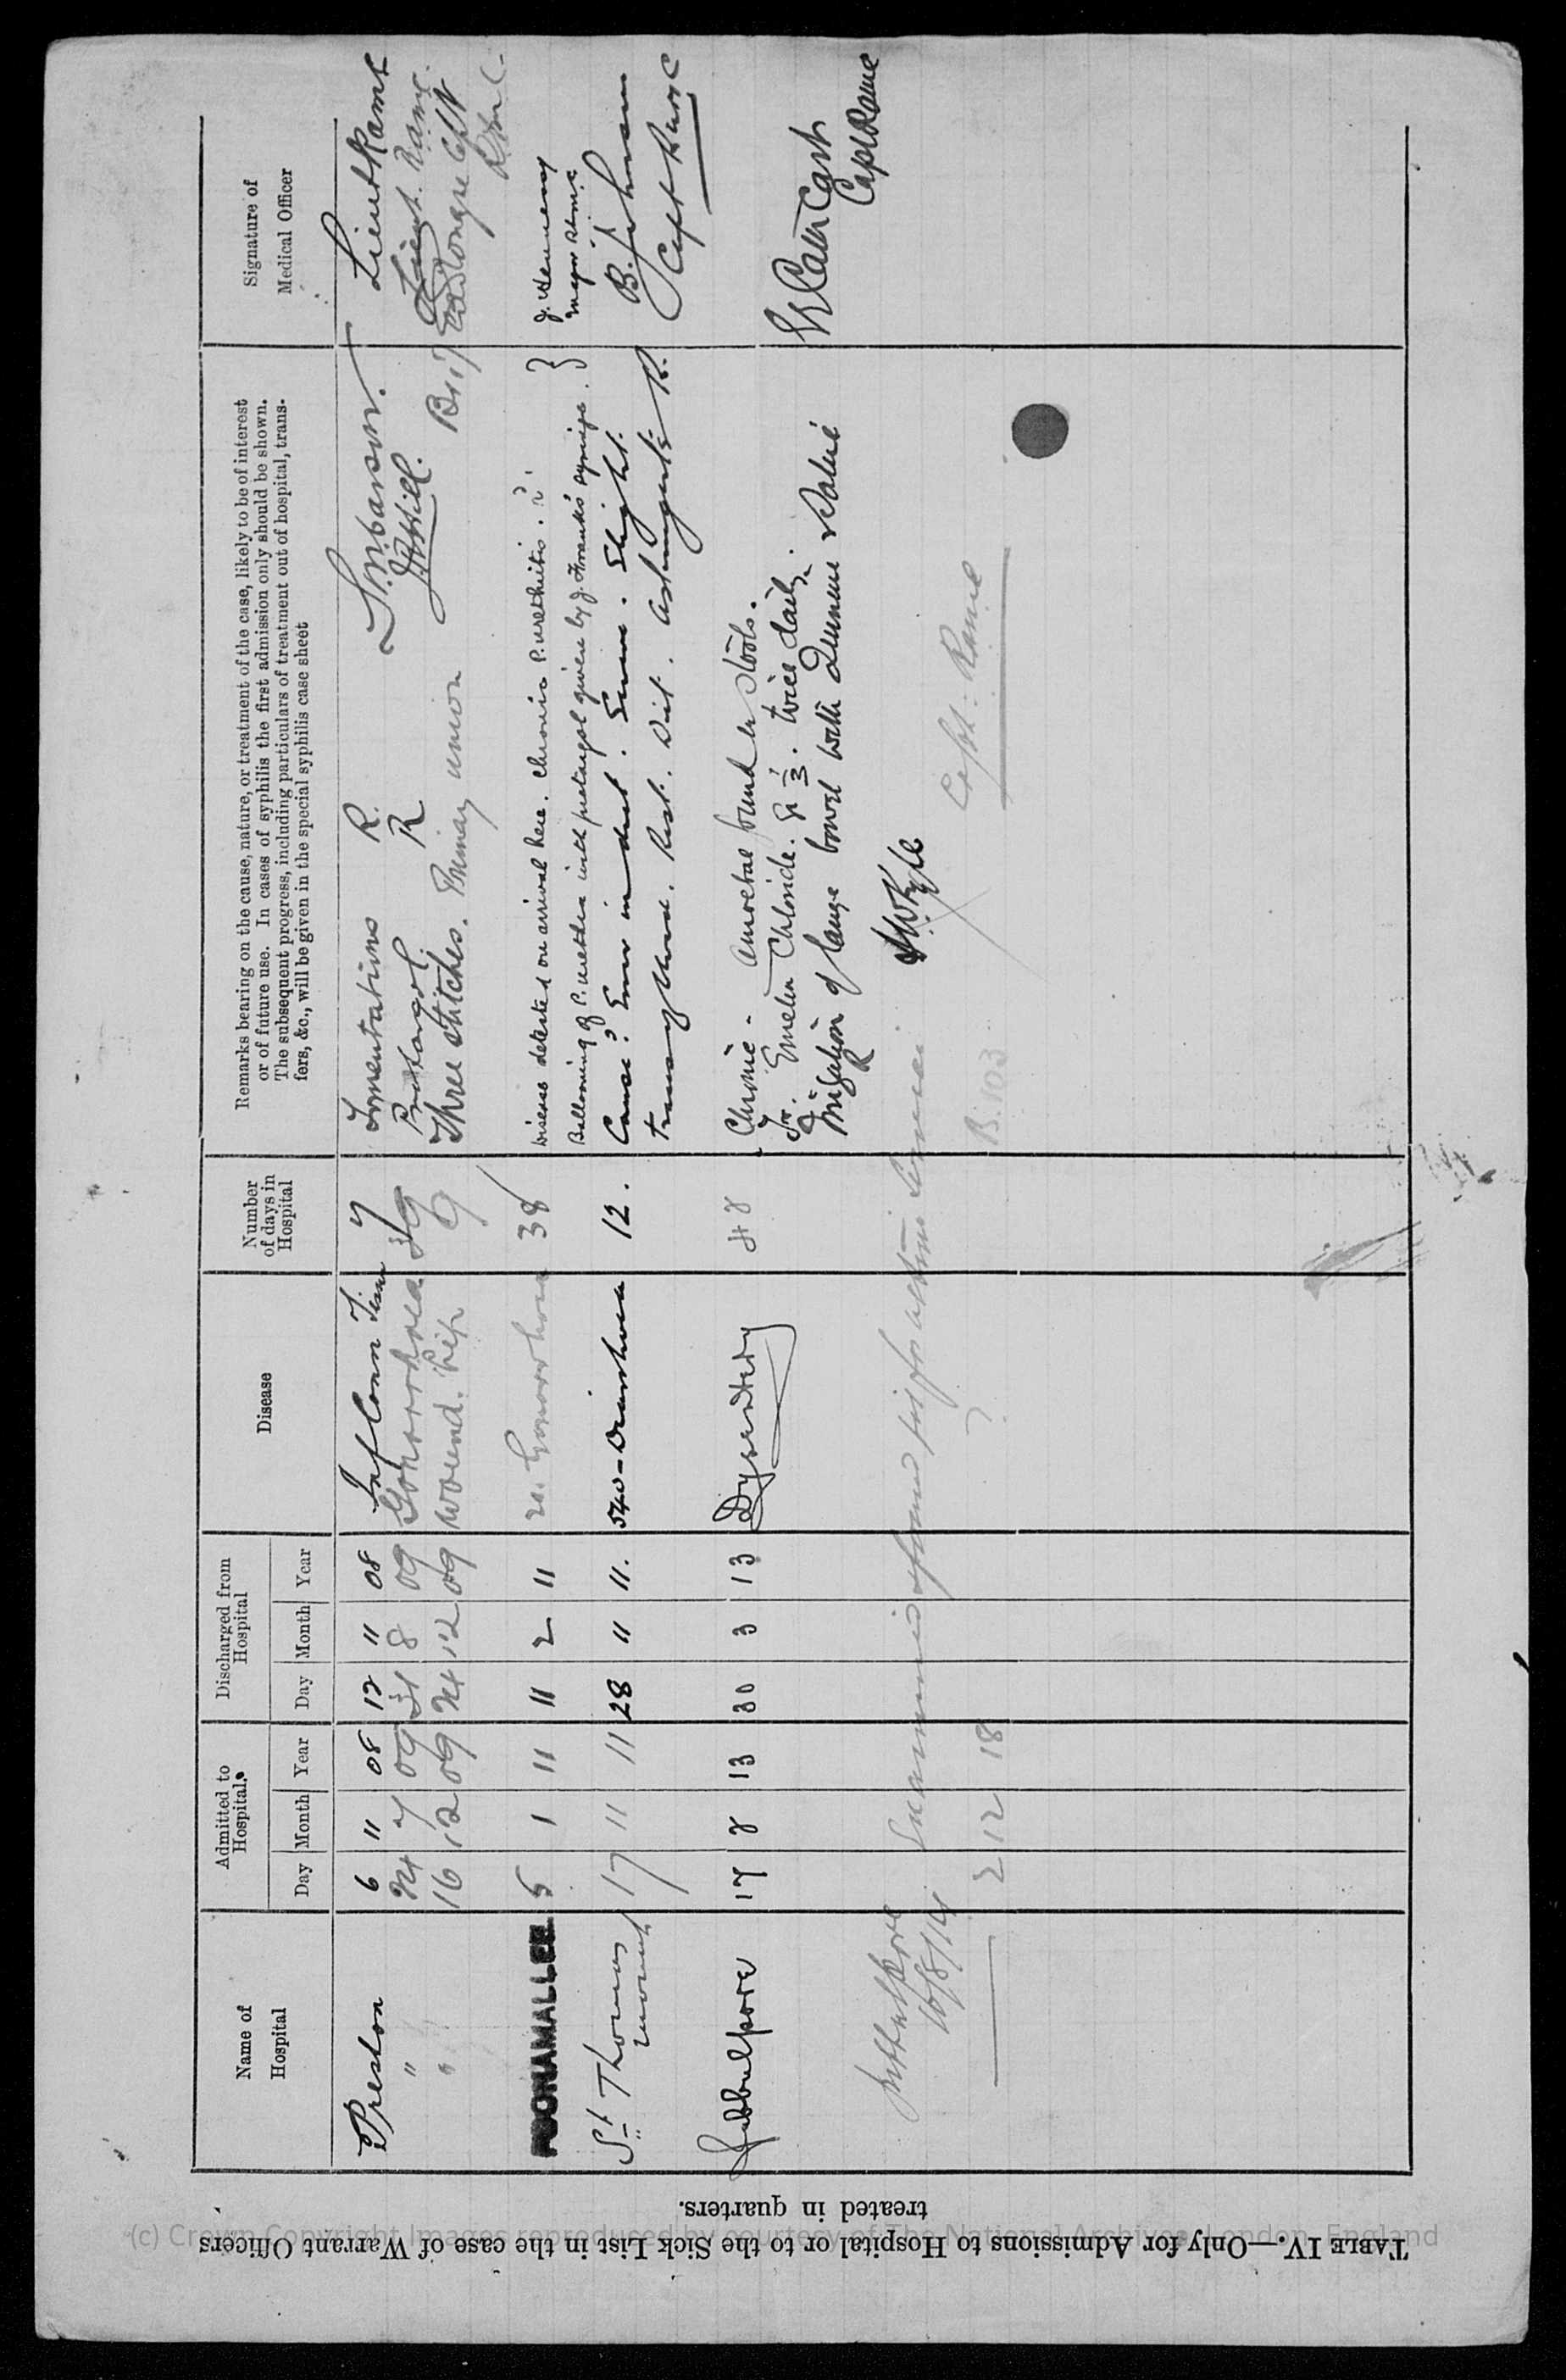 TABLE IV.—Only for Admissions to Hospital or to the Sick List in the case of Warrant Officers
treated in quarters.
Name of
Hospital
Admitted to
Hospital.
Day Month Year
Discharged from
Hospital
Day Month Year
Disease
Number
of days in
Hospital
Remarks bearing on the cause, nature, or treatment of the case, likely to be of interest
or of future use. In cases of syphilis the first admission only should be shown.
The subsequent progress, including particulars of treatment out of hospital, trans-
fers, &c., will be given in the special syphilis case sheet
Signature of
Medical Officer
Preston 6 11 08 12 11 08 Inflam 7 Fomentations R. Lieut Ramc
" 24 7 09 31 8 09 Gonorrhoea 39 Protargol. R Lieut. Ramc.
" 16 12 09 24 12 09 Wound. Lip 9 Three stitches. Primary union
POONAMALLEE 5 1 11 11 2 11 Gonorrhoea 38 Disease detected on arrival here. Chronic P. urethritis.
J. Hennessy
Major Ramc
Ballooning of P. urethra with protargol given by J. Frank's syringe.
St Thomas 17 11 11 28 11 11. 540-Diarrhoea 12. Cause? Error in diet. Severe. Slight.
Mount Rest. Diet. Astringents R.
Capt Ramc
Jubbulpore 17 2 13 30 3 13 Dysentery 42 Chronic - Amoebae found in stools.
Tr. Emetin Chloride. Gr ⅓. twice daily.
Irrigation of large bowel with Quinine Saline
Capt Ramc
Jubbulpore Examined & found fit for active Service
16/8/14
Capt: Ramc
2 12 18 B.103
(c) Crown Copyright Images reproduced by courtesy of The National Archives, London, England